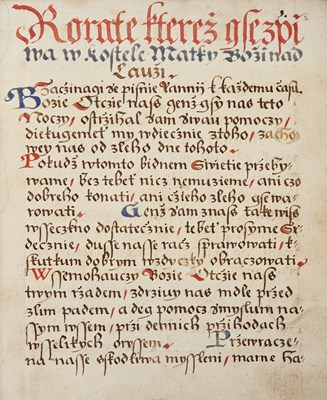 Rorate kterež gse zpi
wa w kostele Matky Boži nad
Lauži.
Začinagi se pisnie Rannij k každemu časů.
Božie Otcže nass genž gsy nas teto
Noczy, ostržihal dam swau pomoczy,
diekugemeť my wdiecznie z toho, zacho
wey nas od zleho dne tohoto.
Pokudž w tomto bidnem Swietie přzeby-
wame, bez tebeť nicz nemuzieme, ani czo
dobreho konati, ani cžleho zleho gse wa-
rowati. Genž sam znass take wiss
wsseczko dostatecznie, tebeť prosyme Sr-
decznie, dusse nasse racz sprawowati, k
skutkum dobrym wzdyczky obraczowati.
Wssemohauczy Božie Otcžie nass
twym ržadem, zdržiug nas mdle przed
zlim padem, a deg pomocz zmyslum na-
ssym wssem, prži dennich pržihodach
wsselikych owssem. Pržewracze-
na nasse sskodliwa myssleni, marne ha-